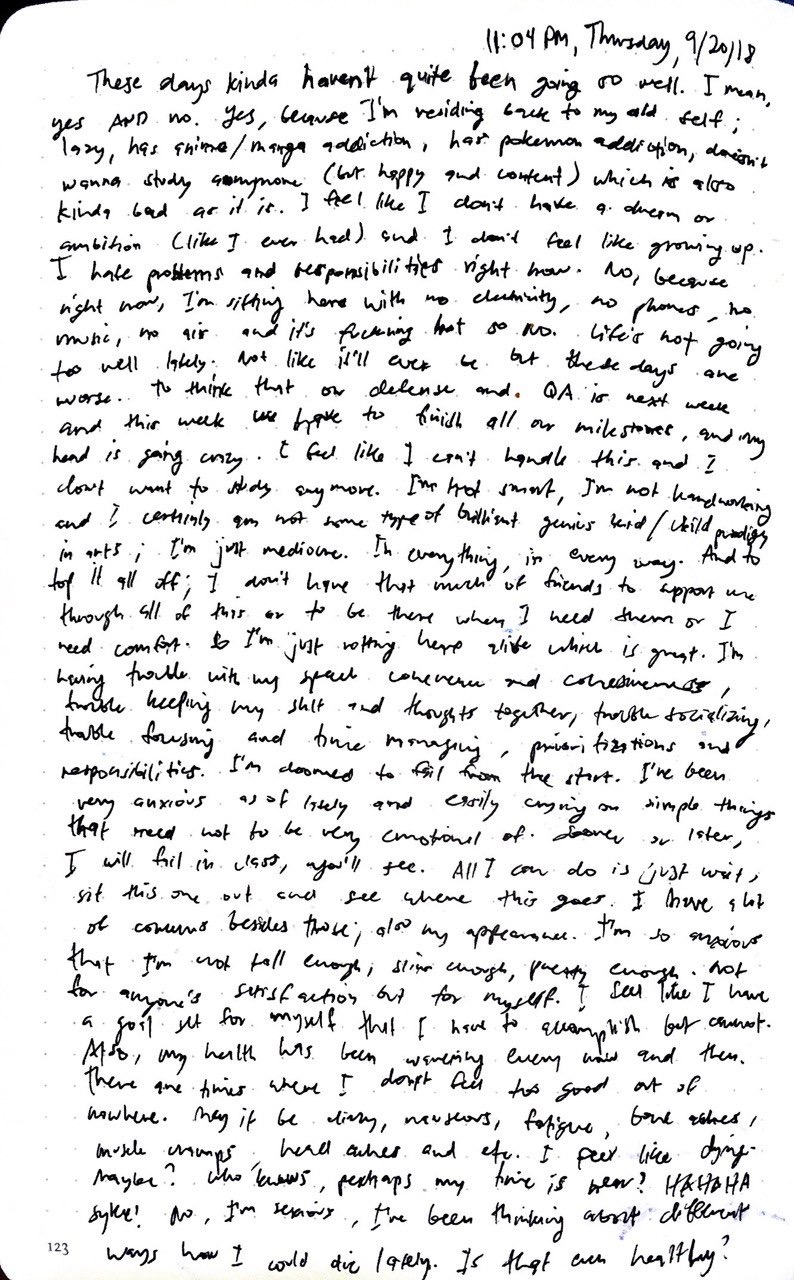 11:04 PM, Thursday, 9/20/18
These days kinda haven't quite been going so well. I mean,
yes AND no. Yes, because I'm residing back to my old self;
lazy, has anime/manga addiction, has pokemon addiction, doesn't
wanna study anymore (but happy and content) which is also
kinda bad as it is. I feel like I don't have a dream or
ambition (like I ever had) and I don't feel like growing up.
I hate problems and responsibilities right now. No, because
right now, I'm sitting here with no electricity, no phones, no
music, no air and it's fucking hot so no. Life's not going
too well lately. Not like it'll ever be but these days are
worse. To think that our defense and QA is next week
and this week we have to finish all our milestones, and my
head is going crazy. I feel like I can't handle this and I
don't want to study anymore. I'm not smart, I'm not hardworking
and I certainly am not some type of brilliant genius kid/child prodigy
in arts; I'm just mediocre. In everything, in every way. And to
top it all off; I don't have that much of friends to support me
through all of this or to be there when I need them or I
need comfort. So I'm just rotting here alive which is great. I'm
having trouble with my speech coherence and cohesiveness,
trouble keeping my shit and thoughts together, trouble socializing,
trouble focusing and time managing, prioritizations and
responsibilities. I'm doomed to fail from the start. I've been
very anxious as of lately and easily crying on simple things
that need not to be very emotional of. Sooner or later,
I will fail in class, you'll see. All I can do is just wait,
sit this one out and see where this goes. I have a lot
of concerns besides those; also my appearance. I'm so anxious
that I'm not tall enough, slim enough, pretty enough. Not
for anyone's satisfaction but for myself. I feel like I have
a goal set for myself that I have to accomplish but cannot.
Also, my health has been wavering every now and then.
There are times where I don't feel too good out of
nowhere. May it be dizzy, nauseous, fatigue, bone aches,
muscle cramps, head aches and etc. I feel like dying.
Maybe? Who knows, perhaps my time is near? HAHAHA
syke! No, I'm serious, I've been thinking about different
ways how I could die lately. Is that even healthy?
123